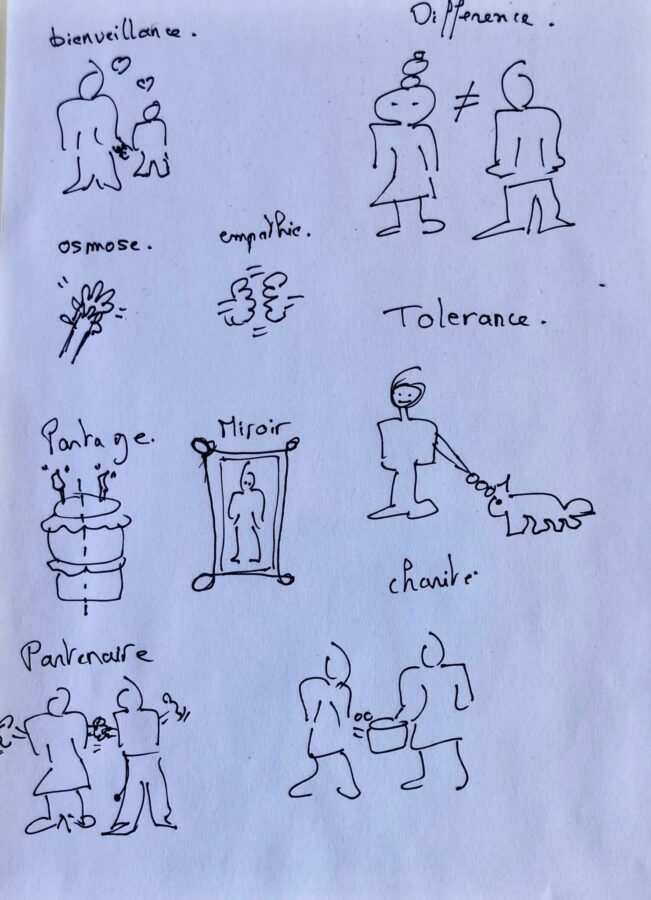 bienveillance.
Différence.
≠
osmose.
empathie.
Tolerance.
Partage.
Miroir
charite.
Partenaire